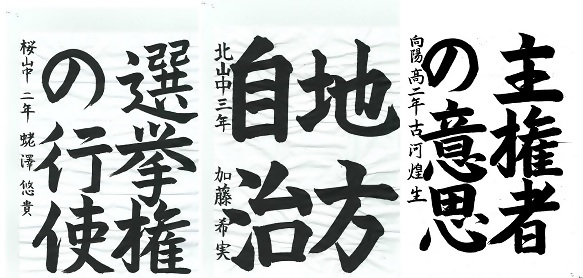 選挙権
の行使
桜山中 二年 蛯澤 悠貴
地方
自治
北山中三年 加藤 希実
主権者
の意思
向陽高二年古河煌生